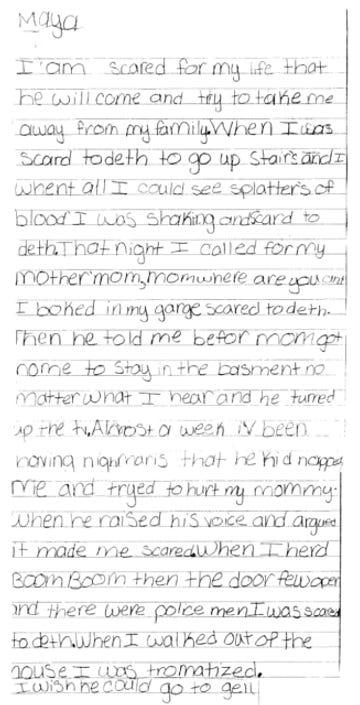 Maya
I am scared for my life that
he will come and try to take me
away from my family. When I was
scard to deth to go up stairs and I
whent all I could see splatters of
blood I was shaking and scard to
deth. That night I called for my
mother mom, mom where are you and
I looked in my garge scared to deth.
Then he told me befor mom got
home to stay in the basment no
matter what I hear and he turred
up the tv. Almost a week iv been
having nigmaris that he kid napped
me and tryed to hurt my mommy.
When he raised his voice and argued
it made me scared. When I herd
Boom Boom then the door flew open
and there were police men I was scared
to deth. When I walked out of the
house I was tromatized.
I wish he could go to gell